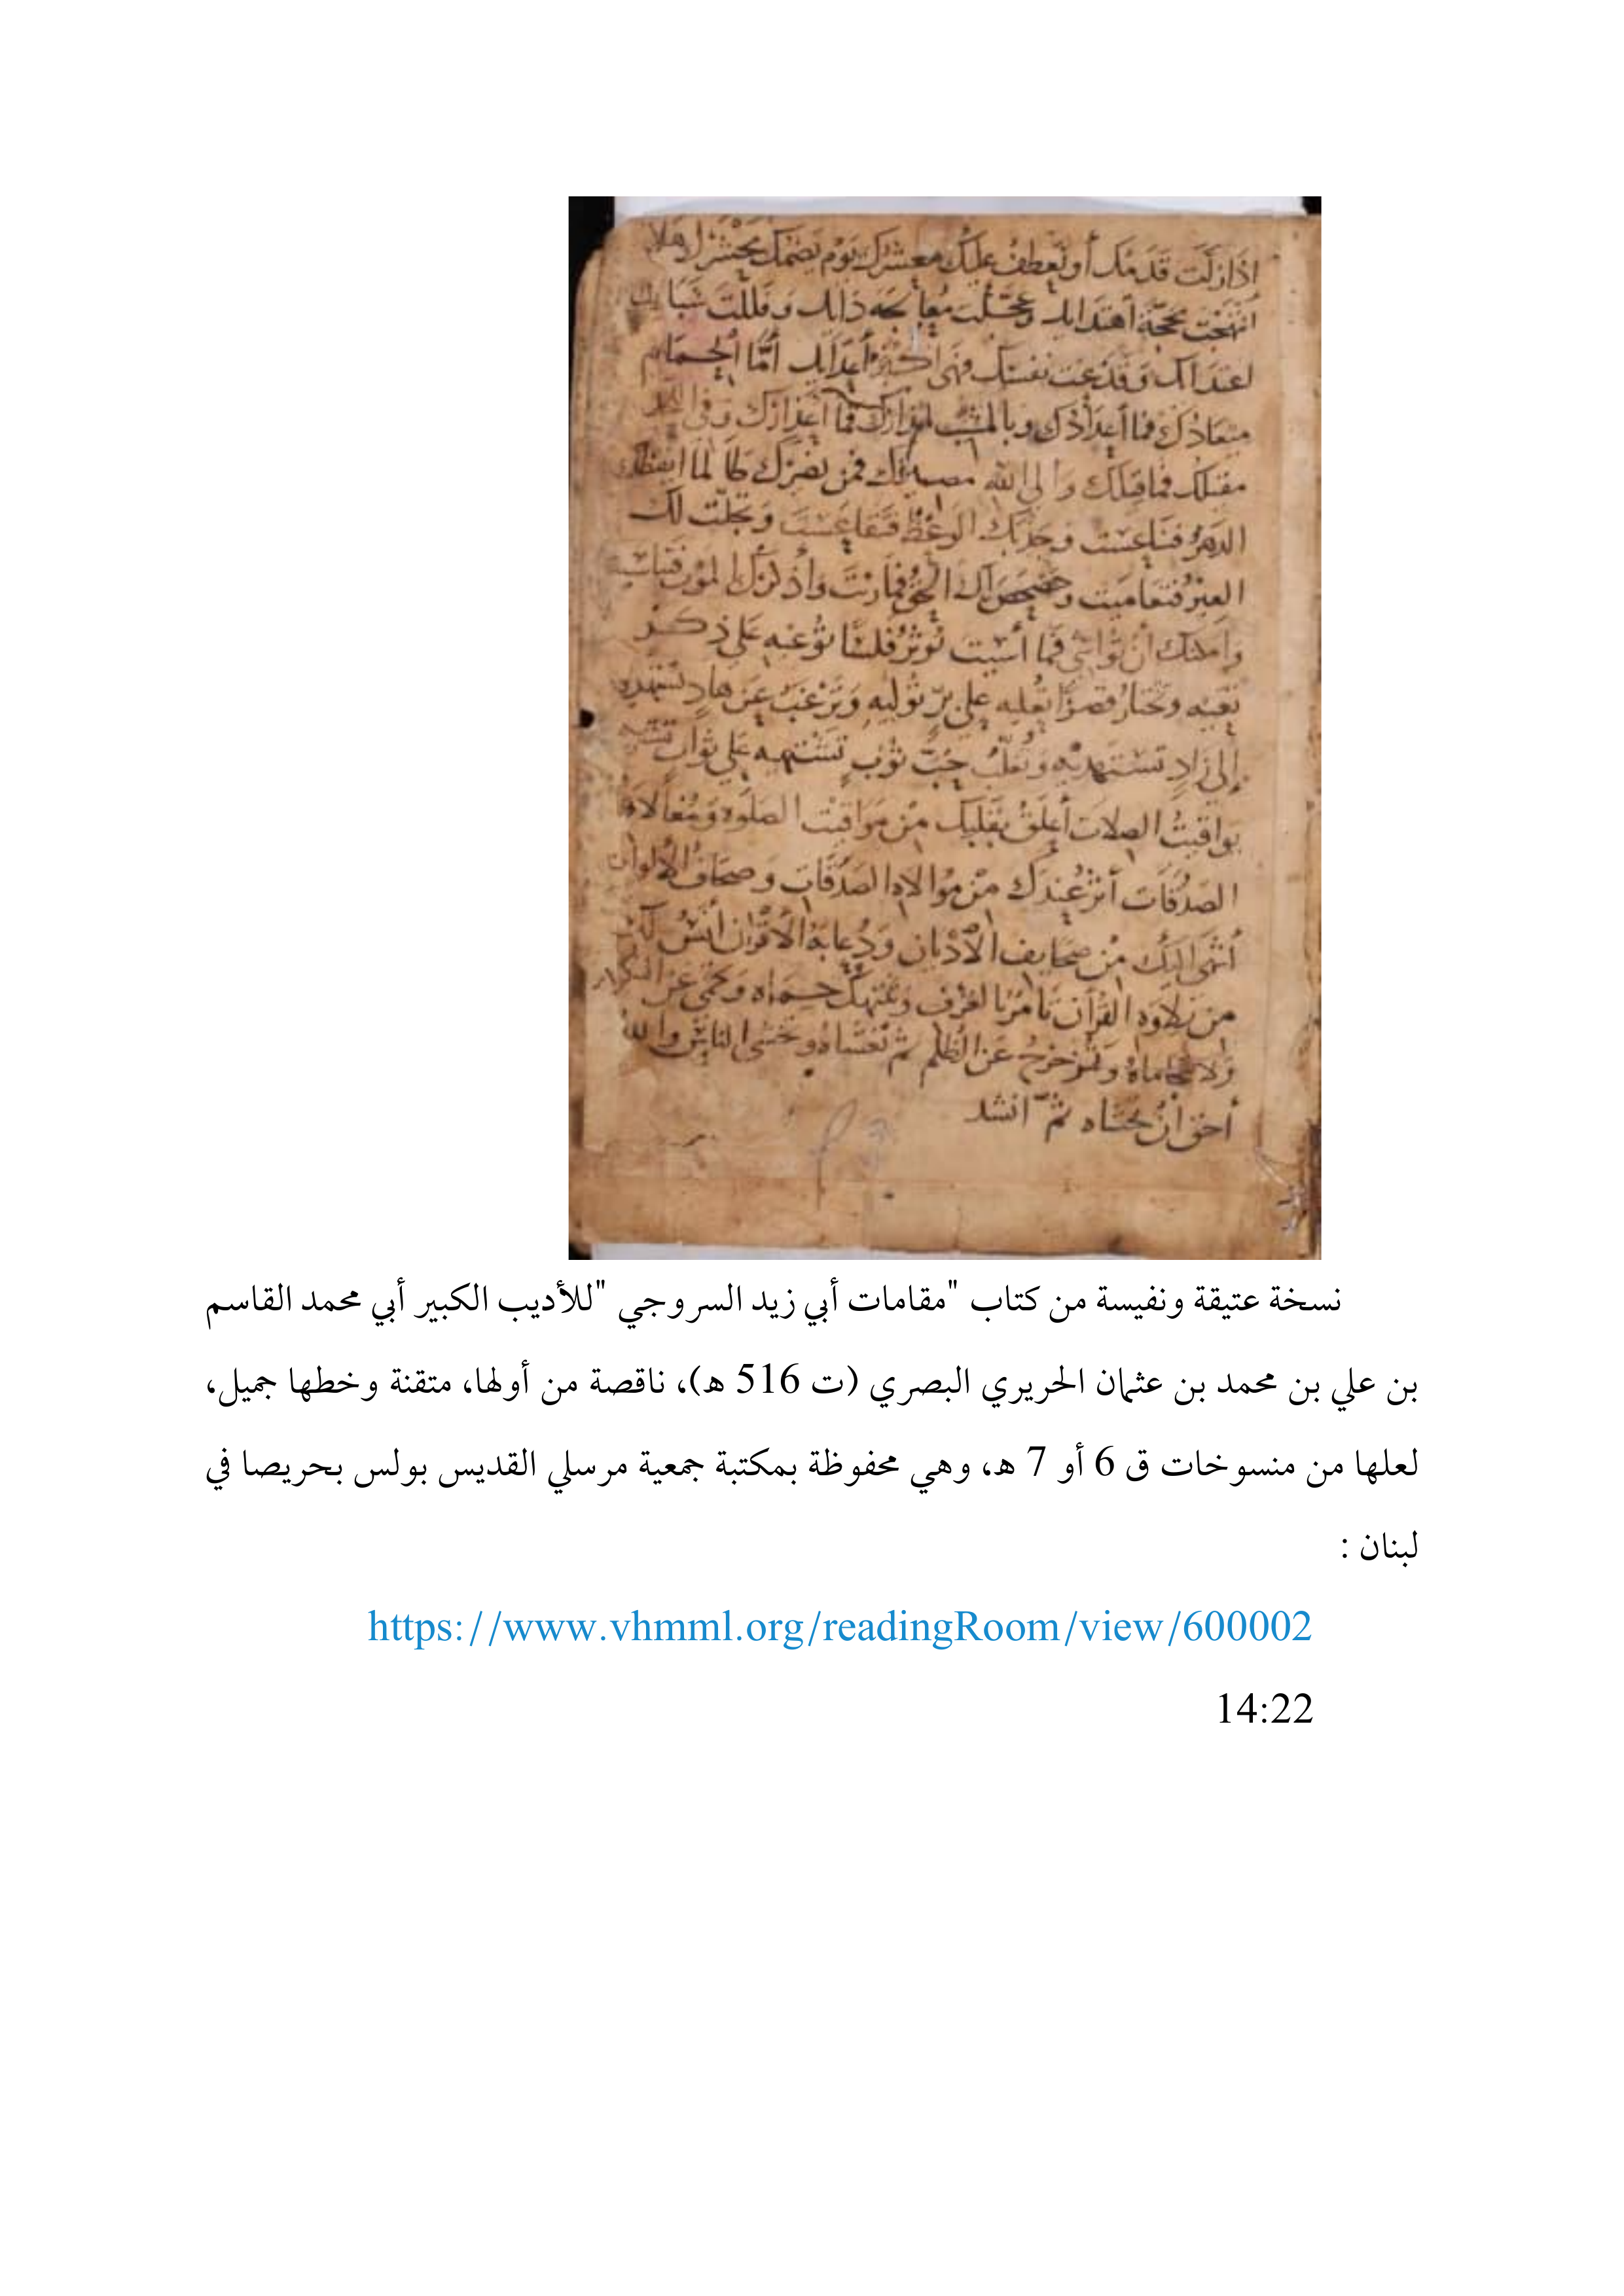 اذا زلت قدمك أو تعطف عليك معشرك يوم يضمك محشرك هلا
انتهجت محجة اهتدايك وعجلت معالجة دايك وفللت شباة
اعتدآئك وقدعت نفسك فهي اكبر أعدآيك أمّا الحمام
ميعادك فما أعدادك وبالمشيب انذارك فما أعذارك وفي اللحد
مقيلك فما قيلك والى الله مصيرك فمن نصيرك طالما ايقظك
الدهر فتناعست وجذبك الوعظ فتقاعست وتجلت لك
العبر فتعاميت وحصحص لك الحق فماريت وأذكرك الموت فتناسيت
وامكنك أن تواسي فما أسيت توثر فلسًا توعيه على ذكر
تعيه وتختار قصرًا تعليه على برّ توليه وترغب عن هادٍ تستهديه
إلى زادٍ تستهديه وتغلّب حبّ ثوبٍ تشتهيه على ثواب تشتريه
يواقيت الصلات أعلق بقلبك من مواقيت الصلوة ومغالاة
الصدقات أثر عندك من موالاة الصدقات وصحاف الألوان
أشهى اليك من صحايف الأديان ودعابة الأقران أنس لك
من تلاوة القرآن تأمر بالعرف وتنتهك حماه وتحمي عن النكر
ولا تتحاماه وتزحزح عن الظلم ثم تغشاه وتخشى الناس والله
أحق أن تخشاه ثمّ انشد
نسخة عتيقة ونفيسة من كتاب "مقامات أبي زيد السروجي "للأديب الكبير أبي محمد القاسم
بن علي بن محمد بن عثمان الحريري البصري (ت 516 هـ)، ناقصة من أولها، متقنة وخطها جميل،
لعلها من منسوخات ق 6 أو 7 هـ، وهي محفوظة بمكتبة جمعية مرسلي القديس بولس بحريصا في
لبنان :
https://www.vhmml.org/readingRoom/view/600002
14:22